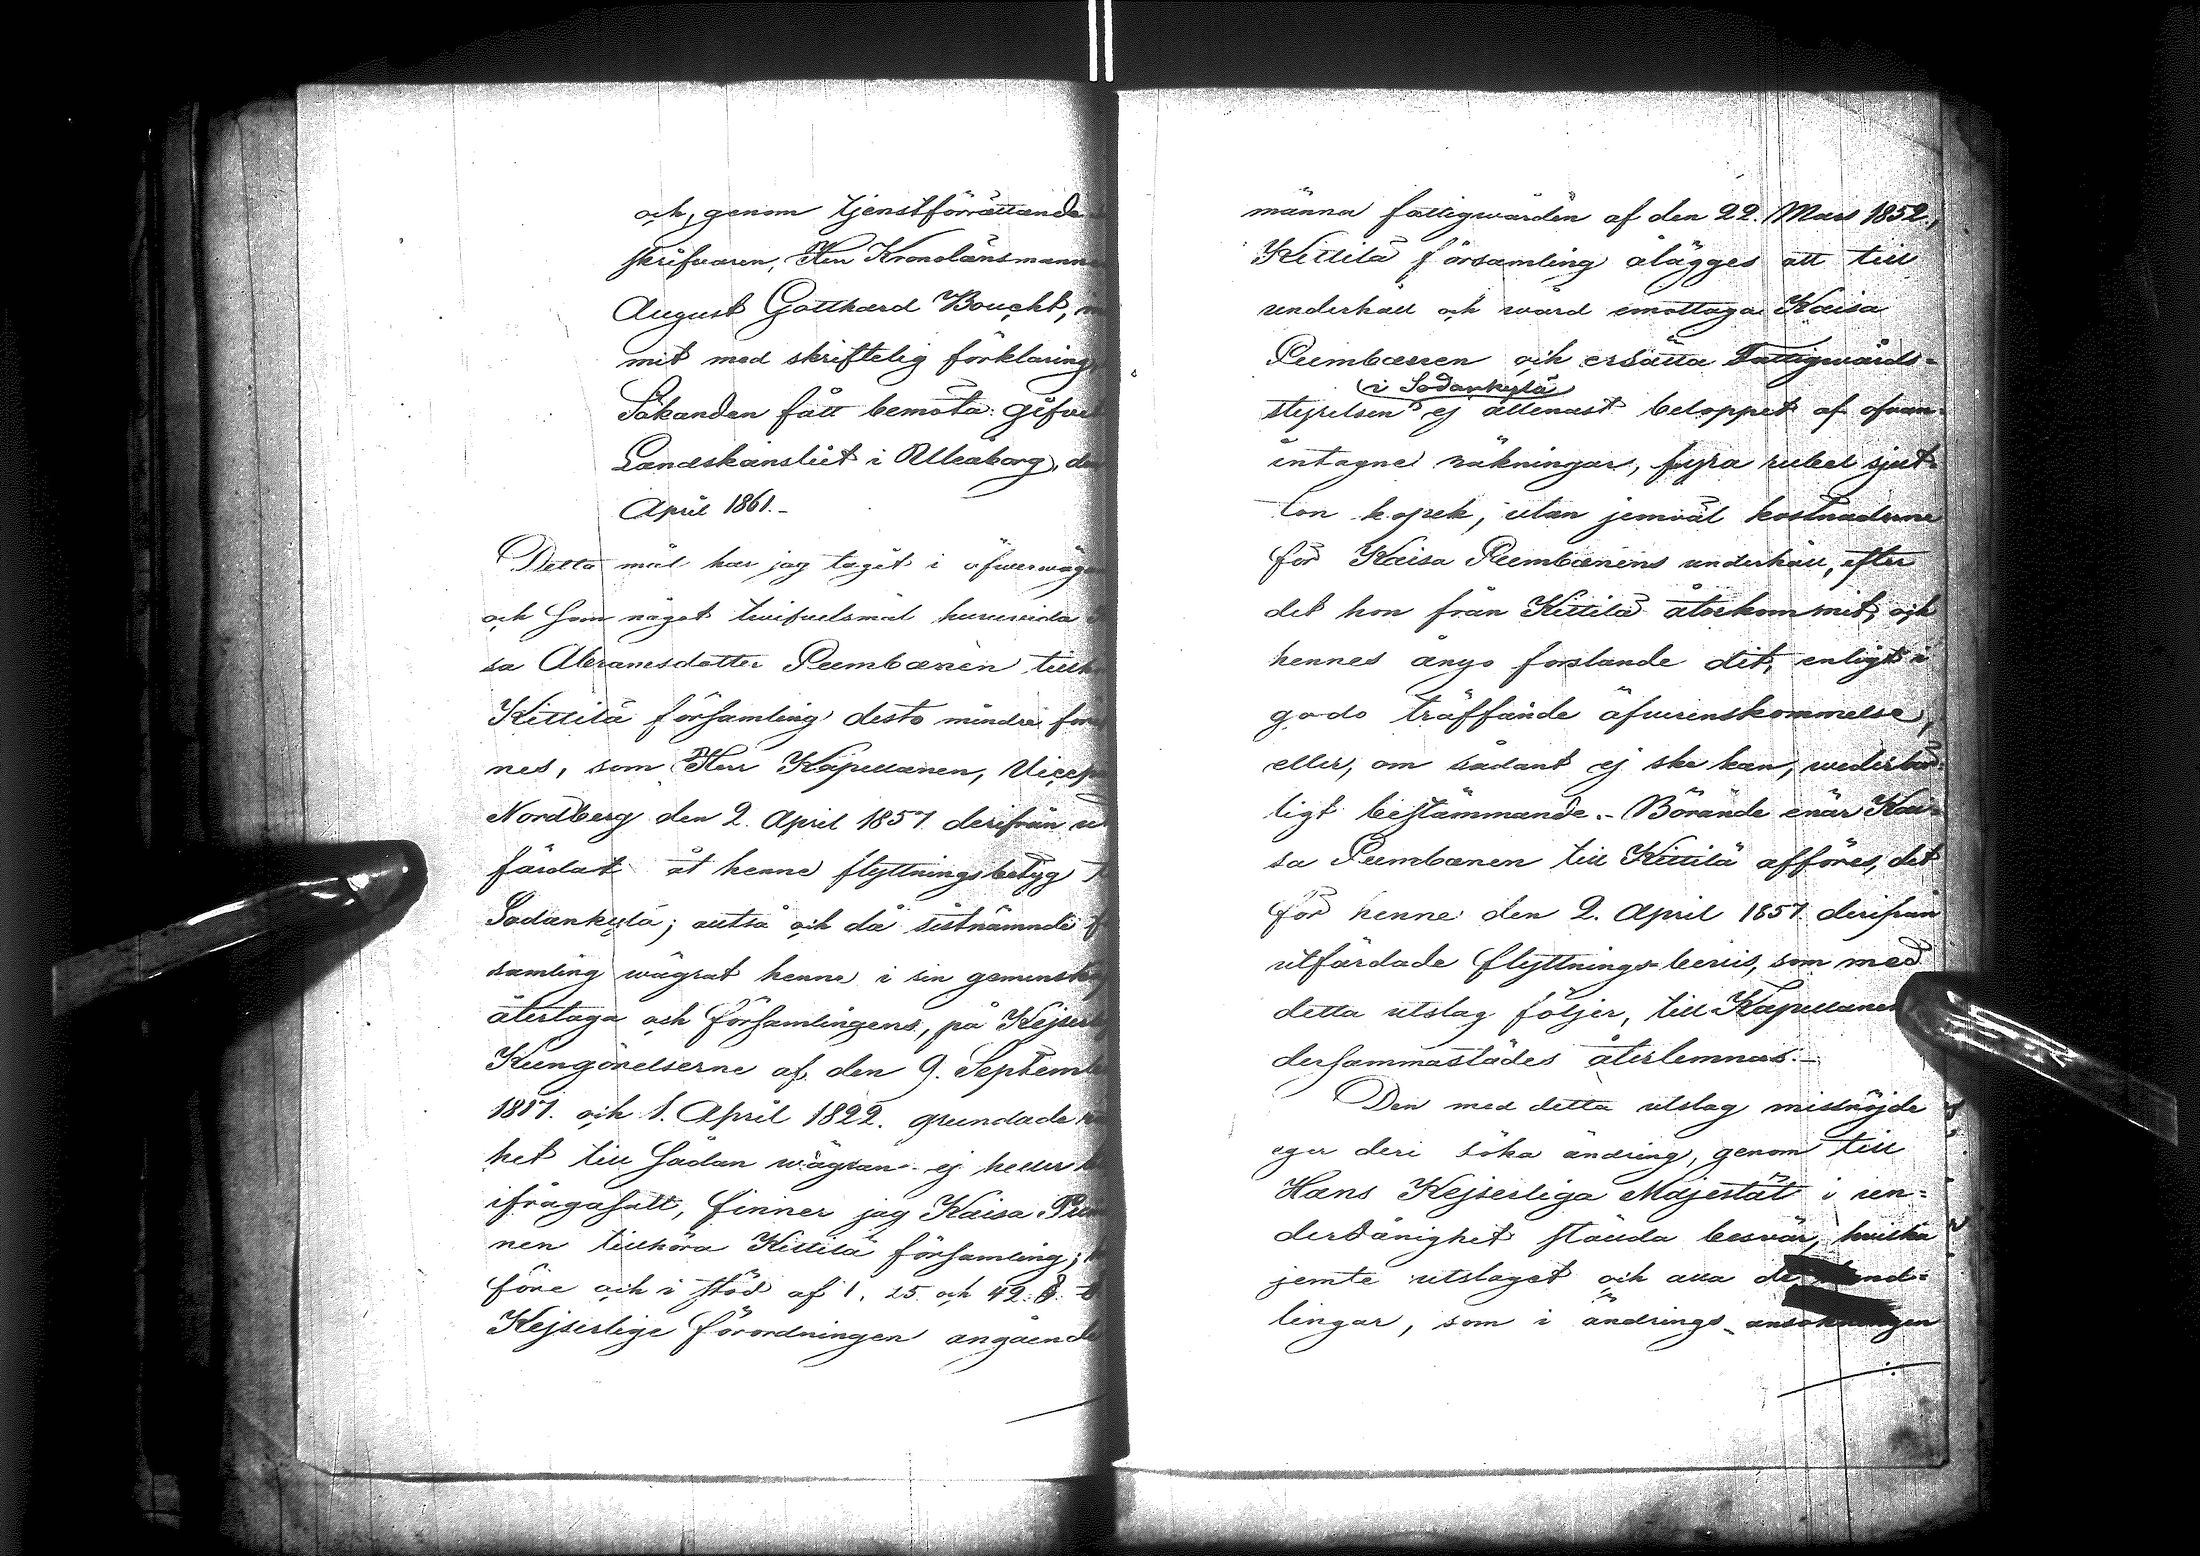 och, genom tjenstförrättande
skrifvaren, Herr Kronolänsmann
August Gotthard Boucht, in
mit med skriftelig förklaring
Sökanden fått bemöta: gifvet
Landskansliet i Uleåborg, den
April 1861.-
Detta mål har jag tagit i öfwerwäg
och som något twifwelsmål huruvida
sa Abramsdotter Pumbanen
Kittilä församling desto mindre
nes, som Herr Kapellanen, Vicep
Nordberg den 2. April 1857 derifrån
färdat åt henne flyttningsbetyg
Sodankylä; alltså och då sistnämnde
samling wägrat henne i sin gemensk
återtaga och församlingens, på Kejserl
Kungörelserne af den 9. Septemb
1817. och 1. April 1822. grundade
het till sådan wägran ej heller
ifrågasatt, finner jag Kaisa Pum
nen tillhöra Kittilä församling;
före och i stöd af 1, 25 och 42. §.
Kejserlige förordningen angående
männa fattigwården af den 22. Mars 1852.,
Kittilä församling ålägges att till
underhåll och wård emottaga Kaisa
Pumbanen och ersätta Fattigwårds-
(i Sodankylä)
styrelsen ej allenast beloppet af ofvan-
intagne räkningar, fyra rubel sjut-
ton kopek, utan jemväl kostnaderne
för Kaisa Pumbanens underhåll, efter
det hon från Kittilä återkommit, och
hennes ånyo forslande dit, enligt i
godo träffande äfwerenskommelse,
eller, om sådant ej ske kan, wederbör-
ligt bestämmande.- Börande enär Kai-
sa Pumbanen till Kittilä afföres, det
för henne den 2. April 1857 derifrån
utfärdade flyttnings-bewis, som med
detta utslag följer, till Kapellanen
dersammastädes återlemnas.-
Den med detta utslag missnöjde
eger deri söka ändring, genom till
Hans Kejserliga Majestät i un-
derdånighet stälda beswär, hwilka
jemte utslaget och alla de hand-
lingar, som i ändrings-ansökningen